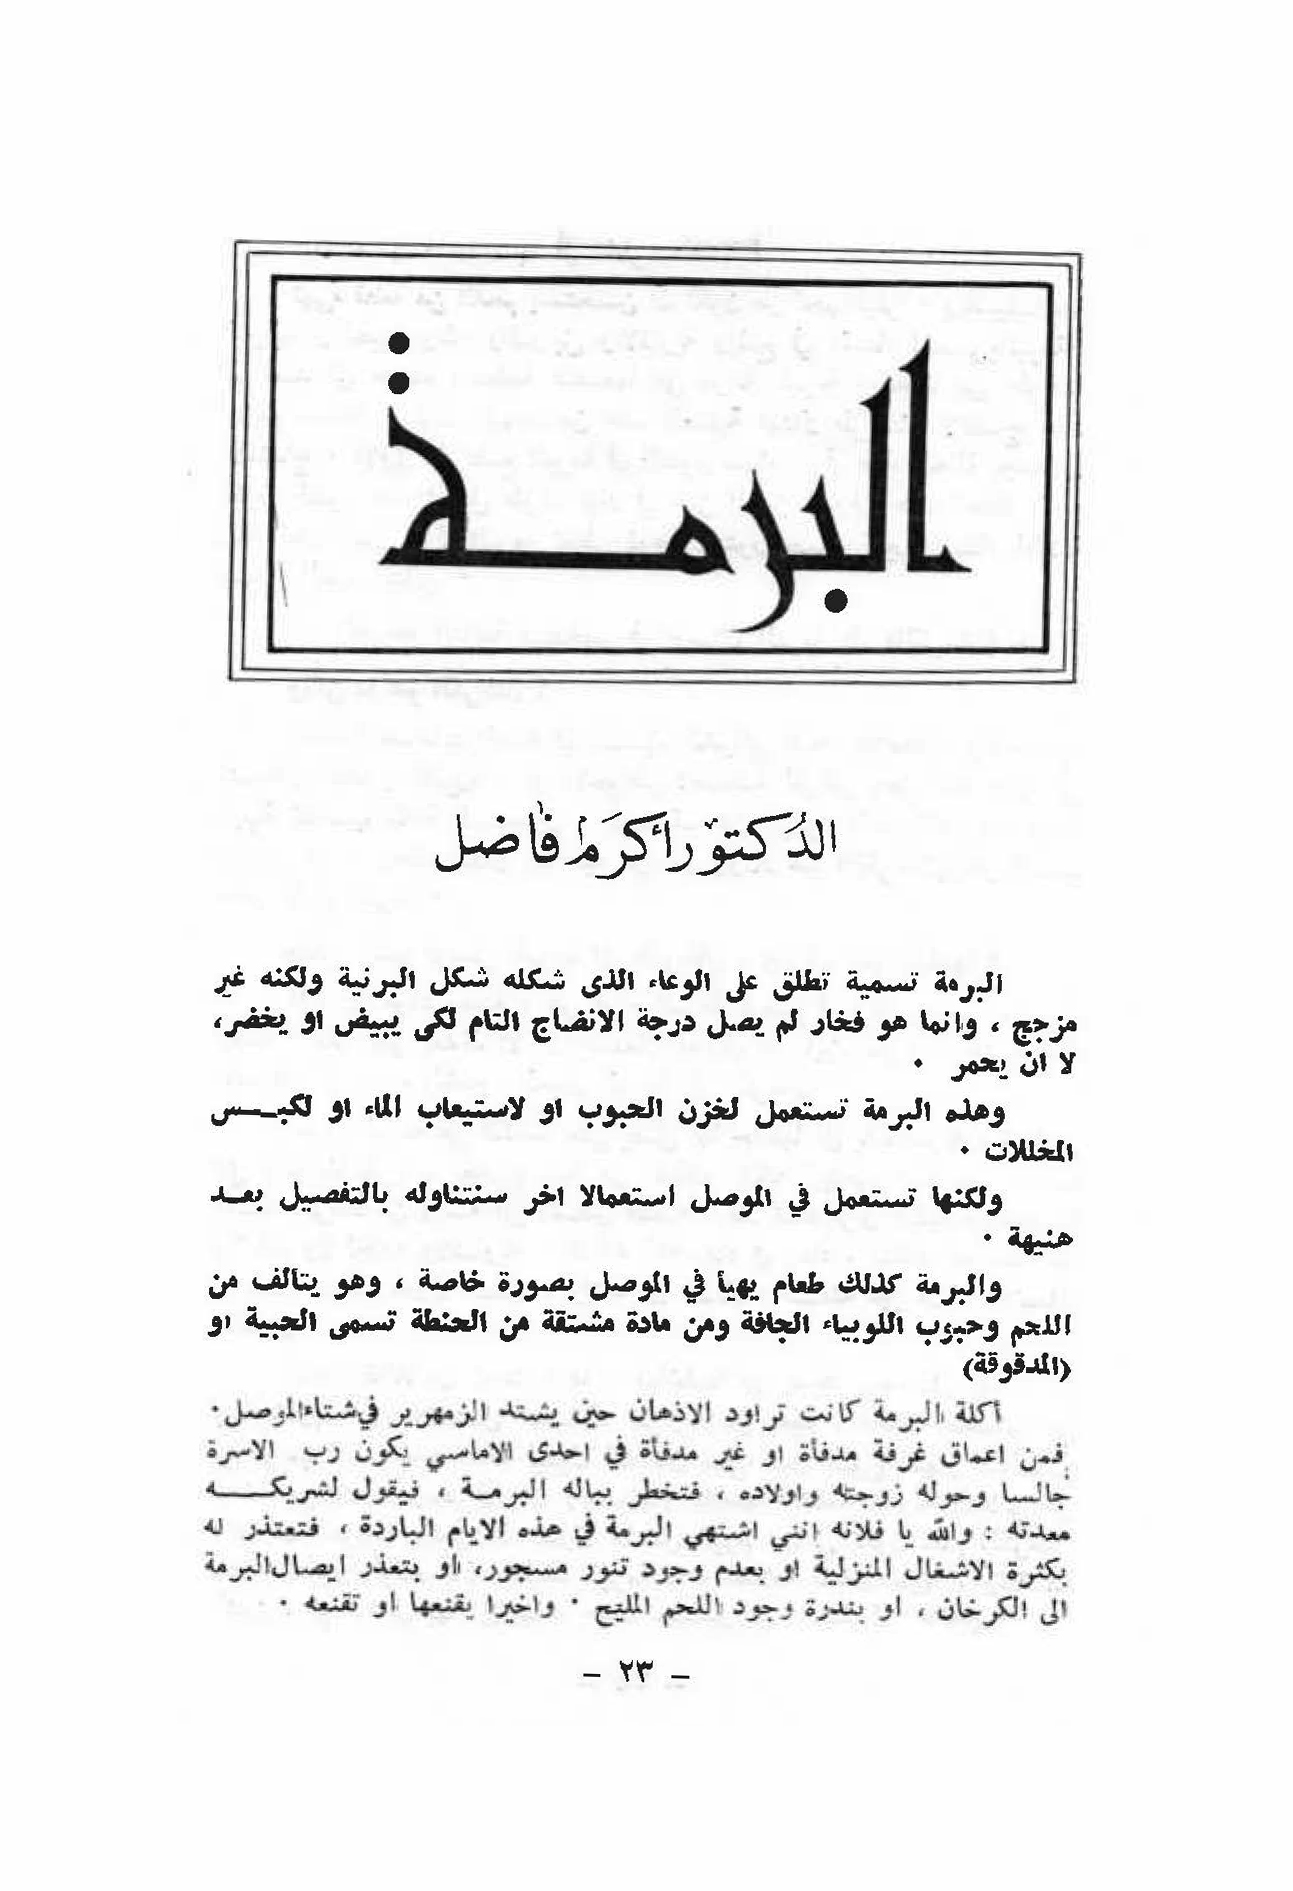 البرمة
الدكتور أكرم فاضل
البرمة تسمية تطلق على الوعاء الذى شكله شكل البرنية ولكنه غير
مزجج ، وانما هو فخار لم يصل درجة الانضاج التام لكى يبيض او يخضر،
لا ان يحمر ٠
وهذه البرمة تستعمل لخزن الحبوب او لاستيعاب الماء او لكبـــس
المخللات ٠
ولكنها تستعمل في الموصل استعمالا اخر سنتناوله بالتفصيل بعـد
هنيهة ٠
والبرمة كذلك طعام يهيأ في الموصل بصورة خاصة ، وهو يتألف من
اللحم وحبوب اللوبياء الجافة ومن مادة مشتقة من الحنطة تسمى الحبية او
(المدقوقة)
أكلة البرمة كانت تراود الاذهان حين يشتد الزمهرير في شتاءالموصل٠
فمن اعماق غرفة مدفأة او غير مدفأة في احدى الاماسي يكون رب الاسرة
جالسا وحوله زوجته واولاده ، فتخطر بباله البرمـة ، فيقول لشريكـــــه
معدته : والله يا فلانه انني اشتهي البرمة في هذه الايام الباردة ، فتعتذر له
بكثرة الاشغال المنزلية او بعدم وجود تنور مسجور، او بتعذر ايصال البرمة
الى الكرخان ، او بندرة وجود اللحم المليح ٠ واخيرا يقنعها او تقنعه ٠
— ٢٣ —